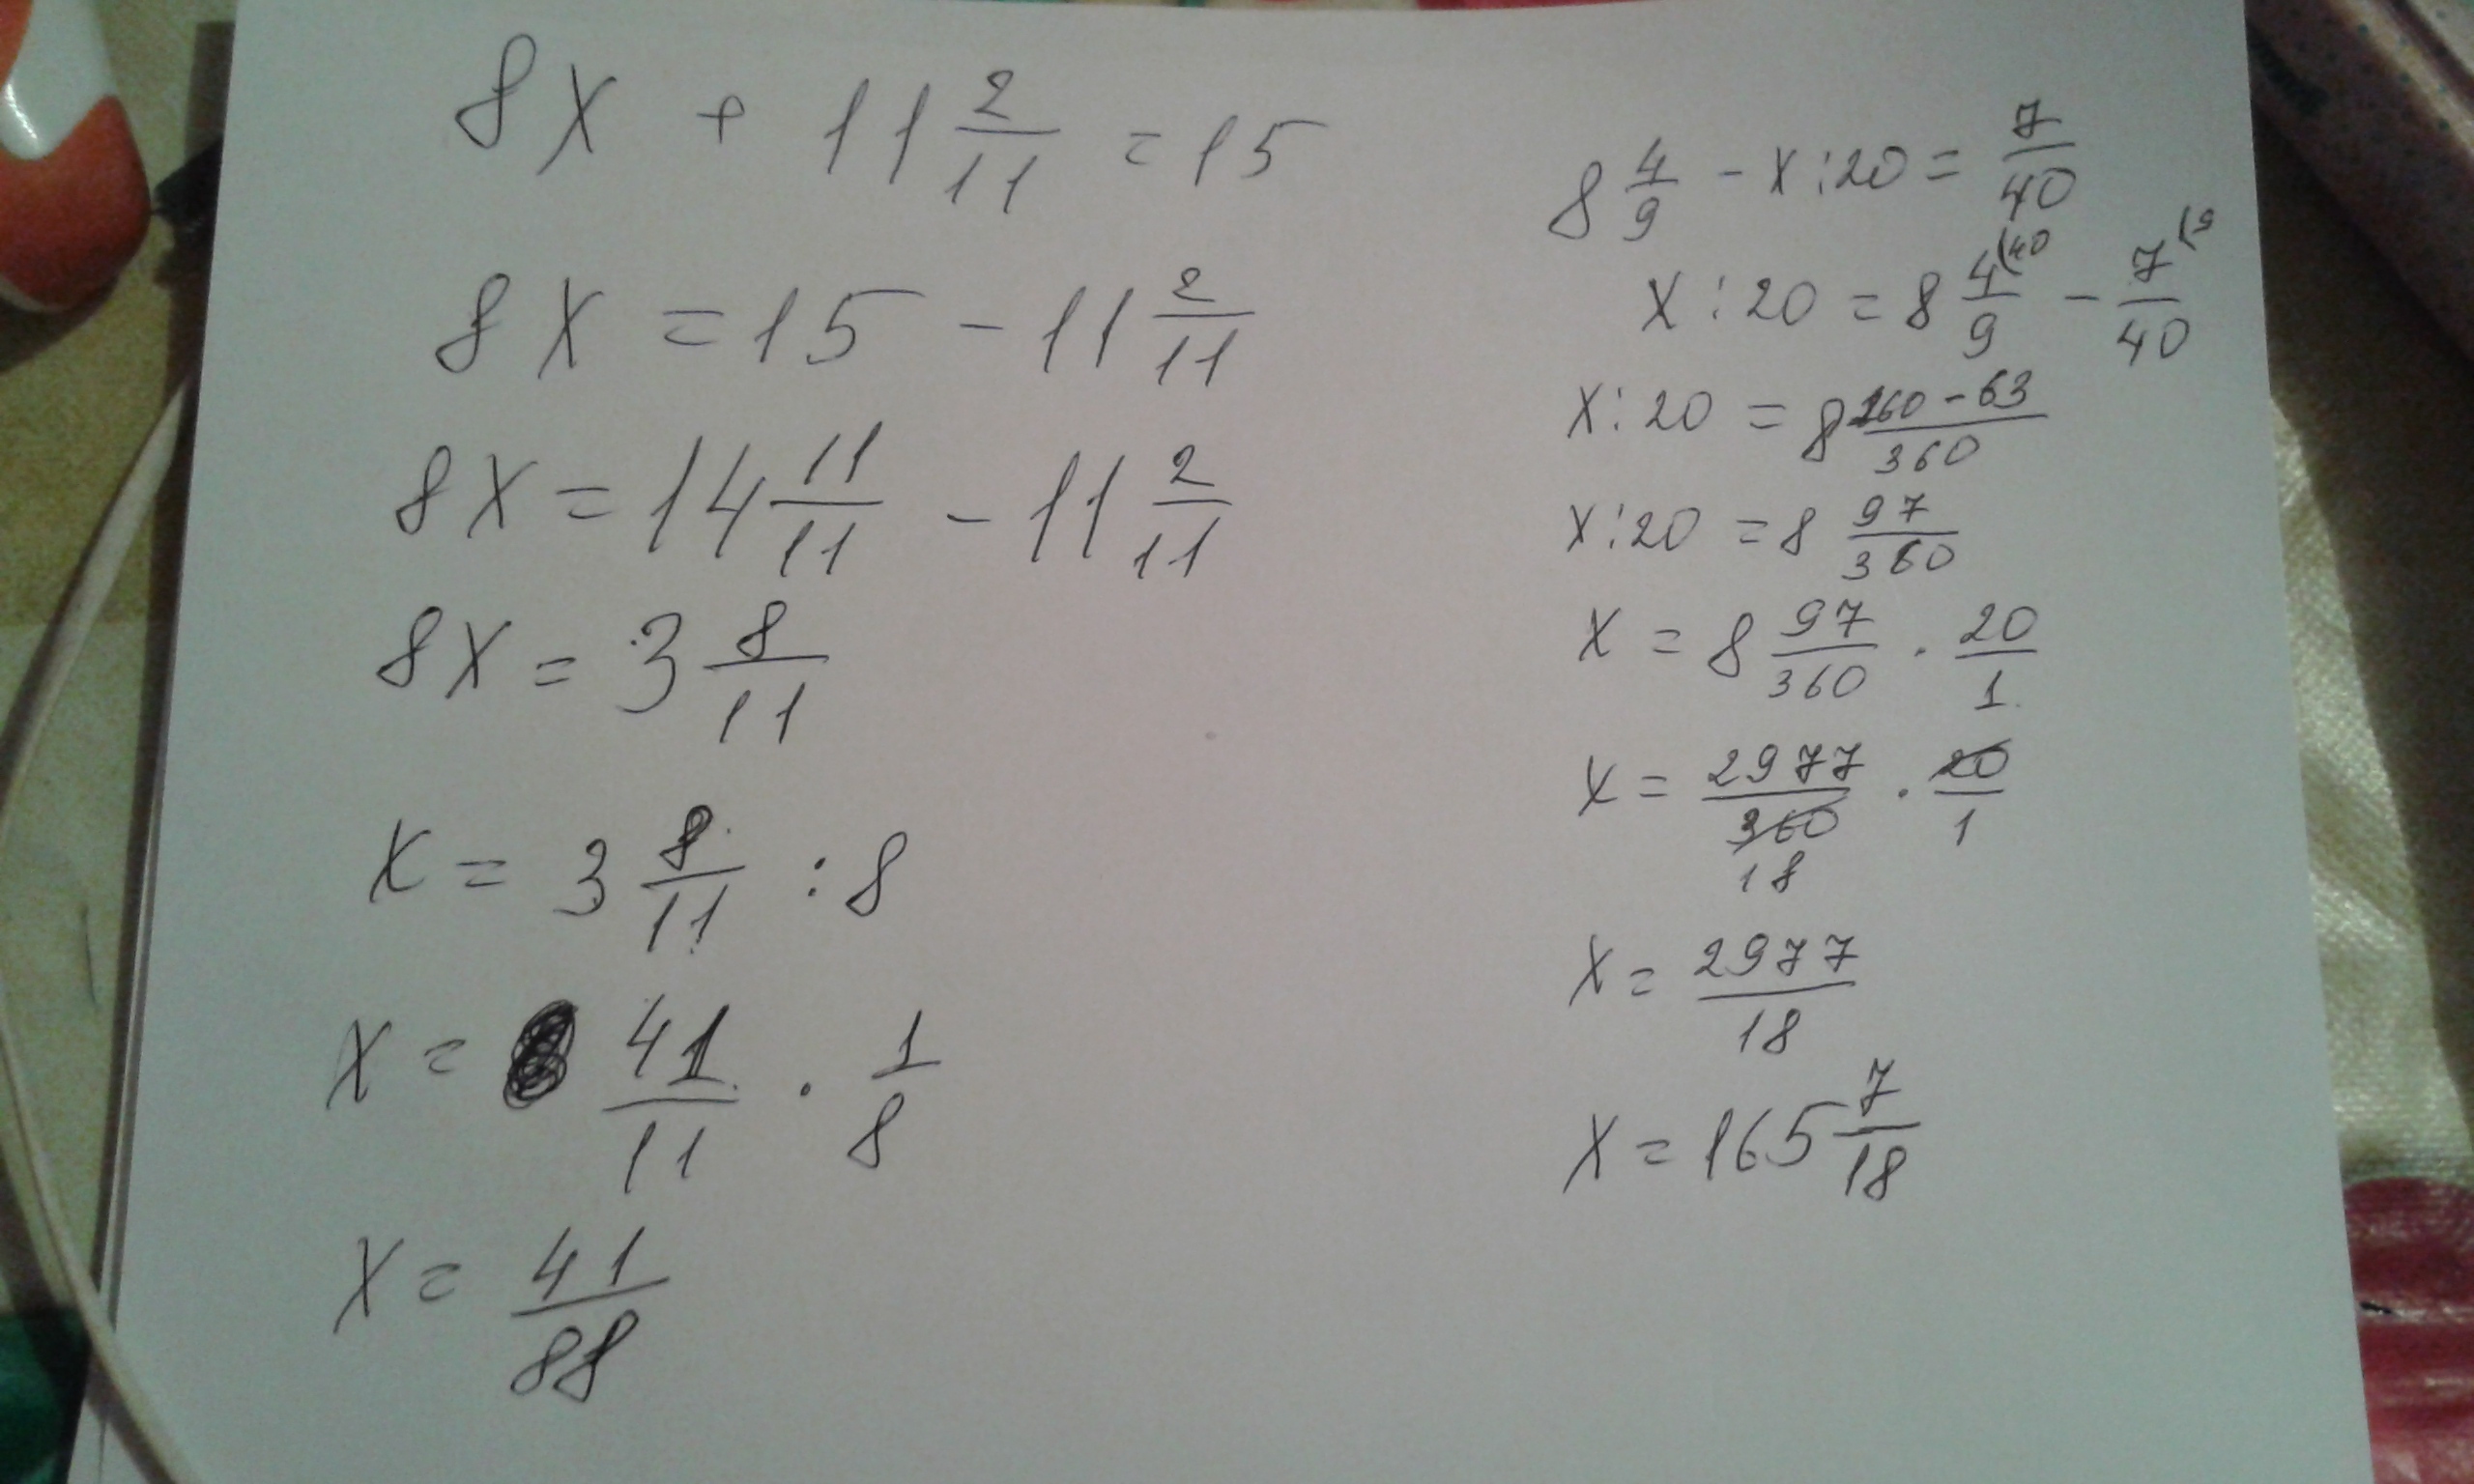 8x + 11 2/11 = 15
8x = 15 - 11 2/11
8x = 14 11/11 - 11 2/11
8x = 3 8/11
x = 3 8/11 : 8
x = 41/11 · 1/8
x = 41/88
8 4/9 - x : 20 = 7/40
x : 20 = 8 4(40/9 - 7(9/40
x : 20 = 8 160-63/360
x : 20 = 8 97/360
x = 8 97/360 · 20/1
x = 2977/360 · 20/1
18
x = 2977/18
x = 165 7/18